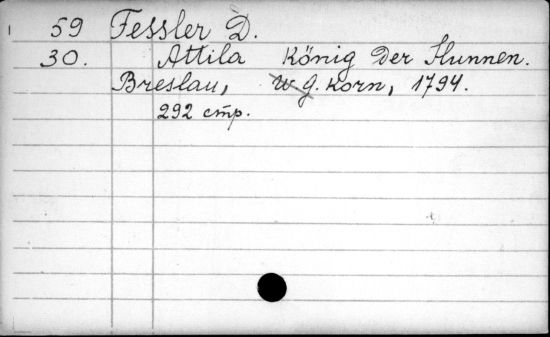 59 Fessler D.
30. Attila König Der Hunnen.
Breslau, W. G. Korn, 1794.
292 стр.